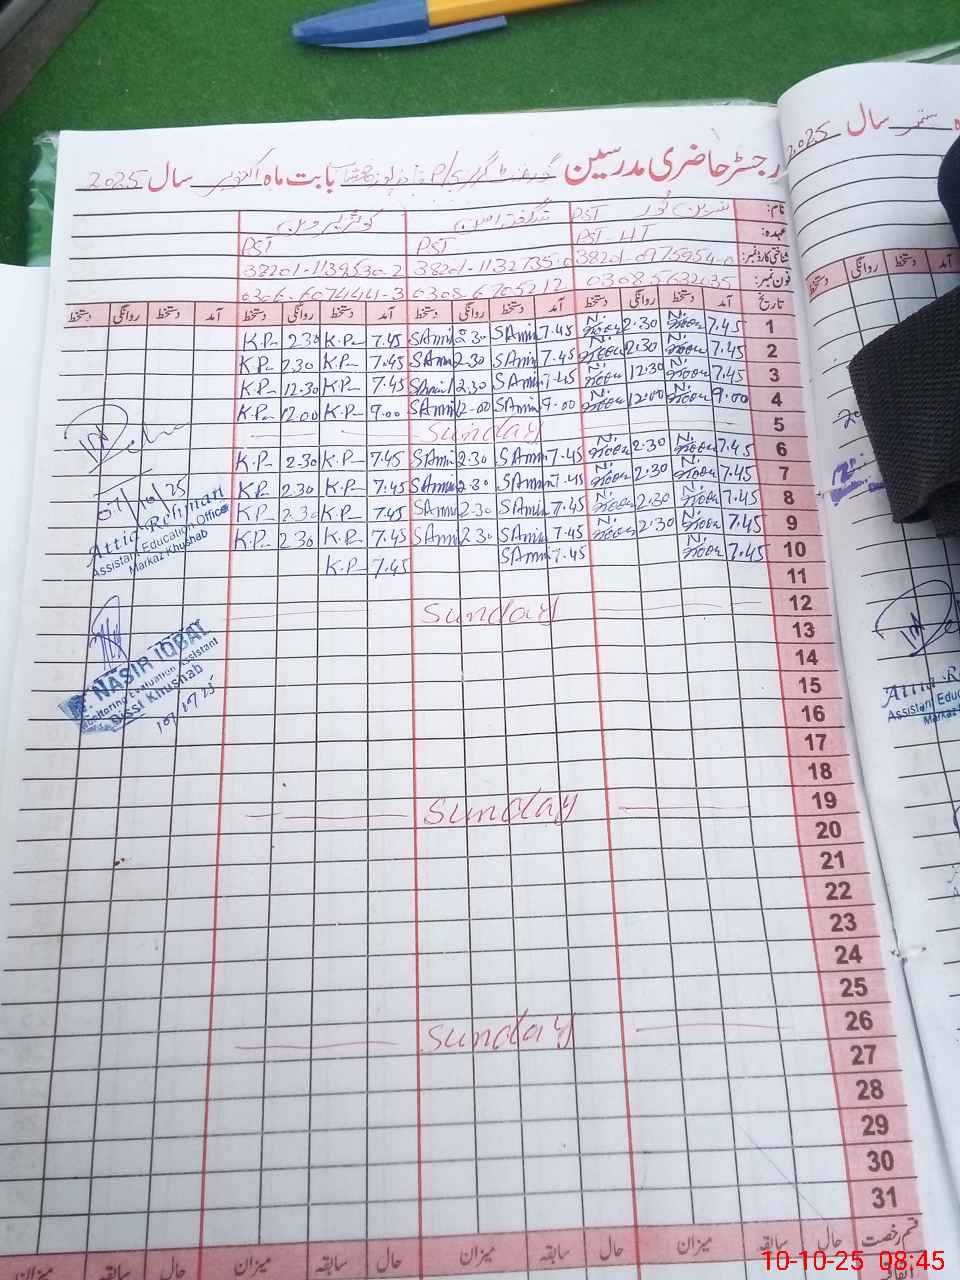 رجسٹر حاضری مدرسین گورنمنٹ گرلز P/S بابت ماہ اکتوبر سال 2025
نام: نسرین کوثر PST شگفتہ امین کوثر پروین
عہدہ: PST-HT PST PST
شناختی کارڈ نمبر: 38201-1132735-0 38201-1139530-2
فون نمبر: 03085632035 0308-6705212 0306-6074441-3
تاریخ آمد دستخط روانگی دستخط آمد دستخط روانگی دستخط آمد دستخط روانگی دستخط آمد دستخط روانگی دستخط
1 7.45 2.30 7.45 SAmin 2.30 SAmin 7.45 K.P 2.30 K.P
2 7.45 2.30 7.45 SAmin 2.30 SAmin 7.45 K.P 2.30 K.P
3 7.45 12.30 7.45 SAmin 12.30 SAmin 7.45 K.P 12.30 K.P
4 9.00 12.00 9.00 SAmin 12.00 SAmin 9.00 K.P 12.00 K.P
5 Sunday
6 7.45 2.30 7.45 SAmin 2.30 SAmin 7.45 K.P 2.30 K.P
7 7.45 2.30 7.45 SAmin 2.30 SAmin 7.45 K.P 2.30 K.P
8 7.45 2.30 7.45 SAmin 2.30 SAmin 7.45 K.P 2.30 K.P
9 7.45 2.30 7.45 SAmin 2.30 SAmin 7.45 K.P 2.30 K.P
10 7.45 7.45 SAmin 7.45 K.P
11
12 Sunday
13
14
15
16
17
18
19 Sunday
20
21
22
23
24
25
26 Sunday
27
28
29
30
31
قسم رخصت حال سابقہ میزان حال سابقہ میزان حال سابقہ میزان حال سابقہ میزان
07/10/25
Attia Rehman
Assistant Education Officer
Markaz Khushab
NASIR IQBAL
Monitoring Evaluation Assistant
Khushab
10/10/25
سال 2025
دستخط روانگی دستخط آمد
Assistant Educ
Markaz Kh
10-10-25 08:45